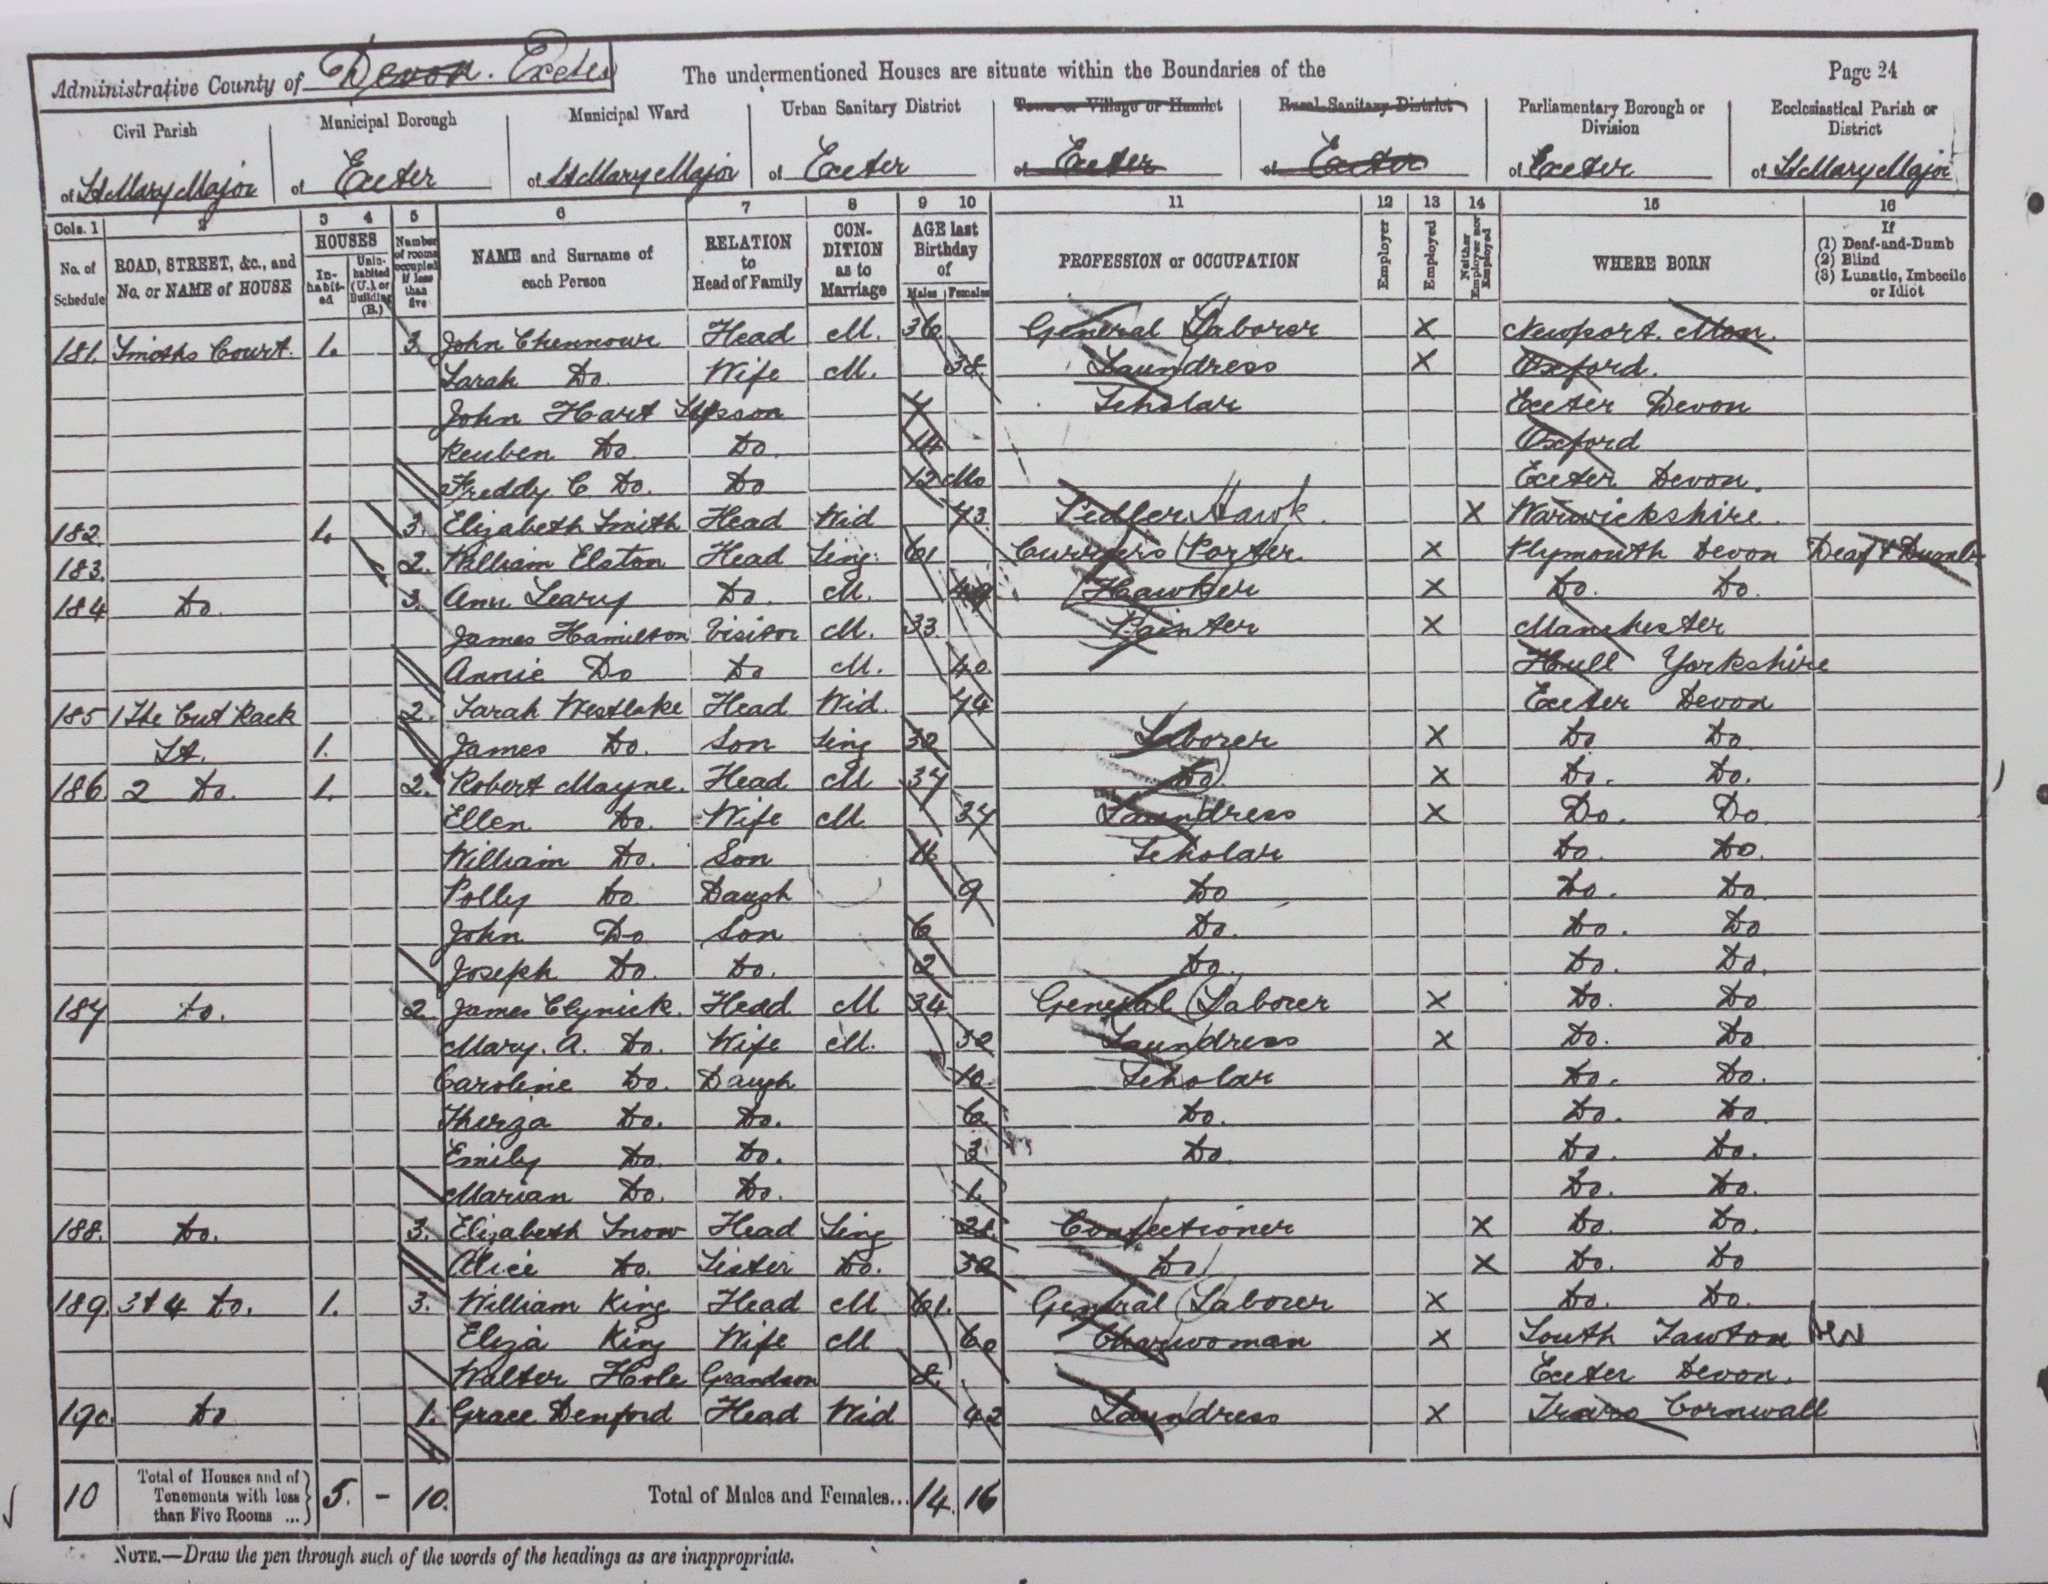 Administrative County of Devon. Exeter The undermentioned Houses are situate within the Boundaries of the Page 24
Civil Parish Municipal Borough Municipal Ward Urban Sanitary District Town or Village or Hamlet Rural Sanitary District Parliamentary Borough or Division Ecclesiastical Parish or District
of St Mary Major of Exeter of St Mary Major of Exeter of Exeter of Exeter of Exeter of St Mary Major
Cols. 1 2 3 4 5 6 7 8 9 10 11 12 13 14 15 16
No. of Schedule ROAD, STREET, &c., and No. or NAME of HOUSE HOUSES In-habit-ed Unin-habited (U.) or Building (B.) Number of rooms occupied if less than five NAME and Surname of each Person RELATION to Head of Family CON-DITION as to Marriage AGE last Birthday of Males Females PROFESSION or OCCUPATION Employer Employed Neither Employer nor Employed WHERE BORN If (1) Deaf-and-Dumb (2) Blind (3) Lunatic, Imbecile or Idiot
181. Smiths Court. 1. 3. John Chennour Head M. 36 General Laborer X Newport. Mon.
Sarah Do. Wife M. 38. Laundress X Oxford.
John Hart Stepson Scholar Exeter Devon
Reuben Do. Do. 14 Oxford
Freddy C Do. Do 12 Mo Exeter Devon.
182. 1. 3. Elizabeth Smith Head Wid 73. Pedler Hawk X Warwickshire.
183. 2. William Elston Head Sing: 61 Curriers Porter. X Plymouth Devon Deaf & Dumb
184 Do. 3. Ann Leary Do. M. Hawker X Do. Do.
James Hamilton Visitor M. 33 Painter X Manchester
Annie Do Do M. 40 Hull Yorkshire
185 1 The Cut Rack 2. Sarah Westlake Head Wid. 74 Exeter Devon
St. 1. James Do. Son Sing 32 Laborer X Do Do.
186 2 Do. 1. 2. Robert Mayne. Head M 37 Do. X Do. Do.
Ellen Do. Wife M. 37 Laundress X Do. Do.
William Do. Son 11 Scholar Do. Do.
Polly Do Daugh 9 Do Do. Do
John Do Son 6 Do. Do. Do
Joseph Do. Do. 2 Do. Do. Do.
187 Do. 2. James Clynick. Head M 34 General Laborer X Do. Do
Mary. A. Do. Wife M. 32 Laundress X Do. Do.
Caroline Do. Daugh 10 Scholar Do. Do.
Therza Do. Do. 6 Do. Do. Do.
Emily Do. Do. 3 Do. Do. Do.
Marian Do. Do. 1. Do. Do.
188. Do. 3. Elizabeth Snow Head Sing Confectioner X Do. Do.
Alice Do. Sister Do. 32 Do X Do. Do
189. 3 & 4 Do. 1. 3. William King Head M 61. General Laborer X Do. Do.
Eliza King Wife M 60 Charwoman X South Tawton
Walter Hole Grandson 8. Exeter Devon.
190. Do 1. Grace Denford Head Wid 42 Laundress X Cornwall
10 Total of Houses and of Tenements with less than Five Rooms ... 5. - 10. Total of Males and Females... 14. 16
NOTE.—Draw the pen through such of the words of the headings as are inappropriate.